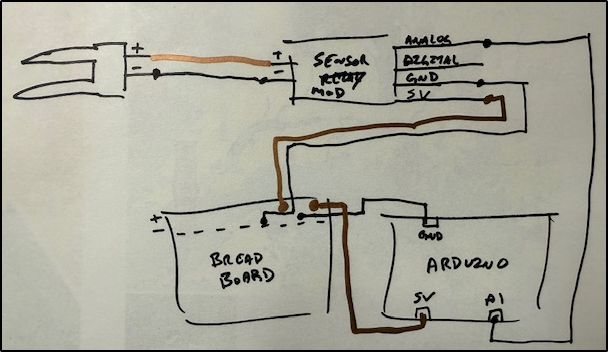 +
-
+
-
SENSOR
MOD
ANALOG
DIGITAL
GND
5V
+
-
BREAD
BOARD
GND
ARDUINO
5V
A1